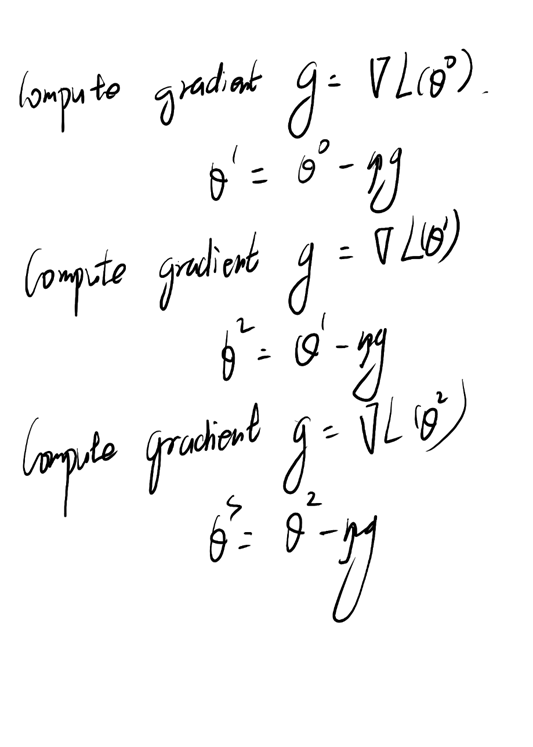 Compute gradient g = ∇L(θ⁰).
θ¹ = θ⁰ - ηg
Compute gradient g = ∇L(θ¹)
θ² = θ¹ - ηg
Compute gradient g = ∇L(θ²)
θ³ = θ² - ηg